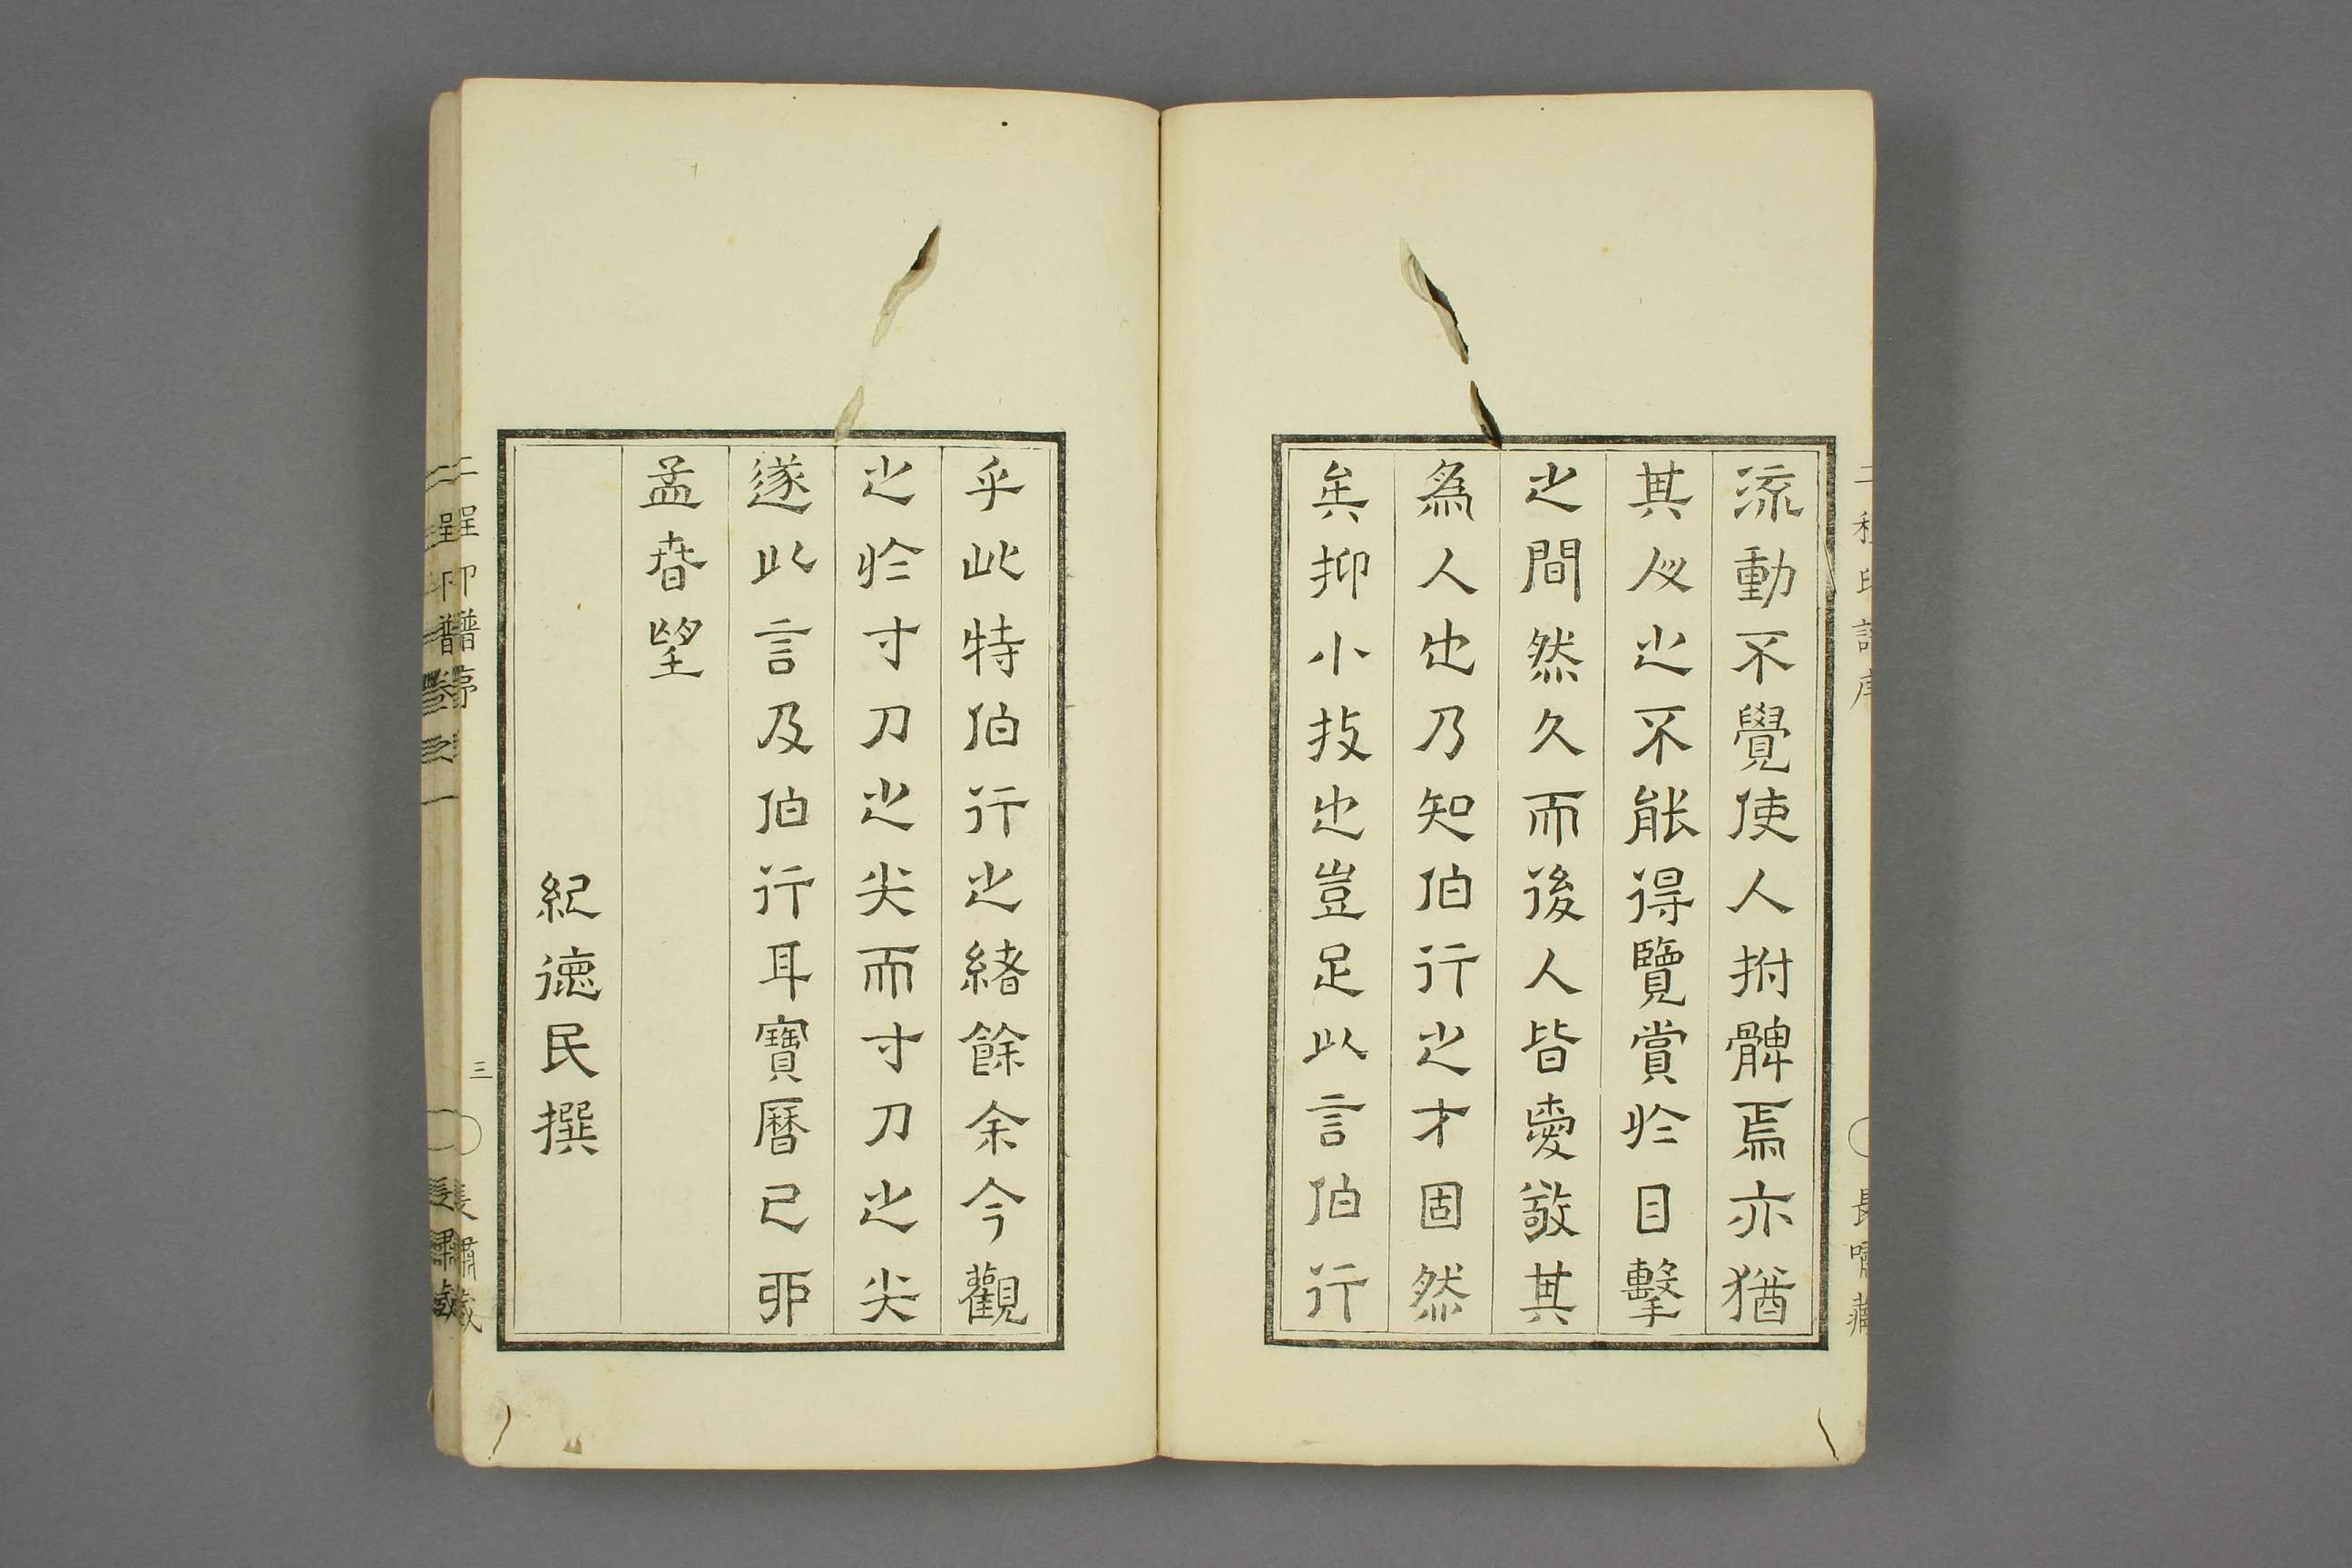 二程印譜序
長嘯藏
流動不覺使人拊髀焉亦猶
其仌之不能得覽賞於目擊
之間然久而後人皆愛敬其
為人也乃知伯行之才固然
矣抑小技也豈足以言伯行
乎此特伯行之緒餘余今觀
之於寸刀之尖而寸刀之尖
遂以言及伯行耳寶曆己卯
孟春望
紀德民撰
二程印譜序
三
長嘯藏